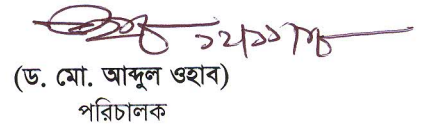 (ড. মো. আব্দুল ওহাব)
পরিচালক